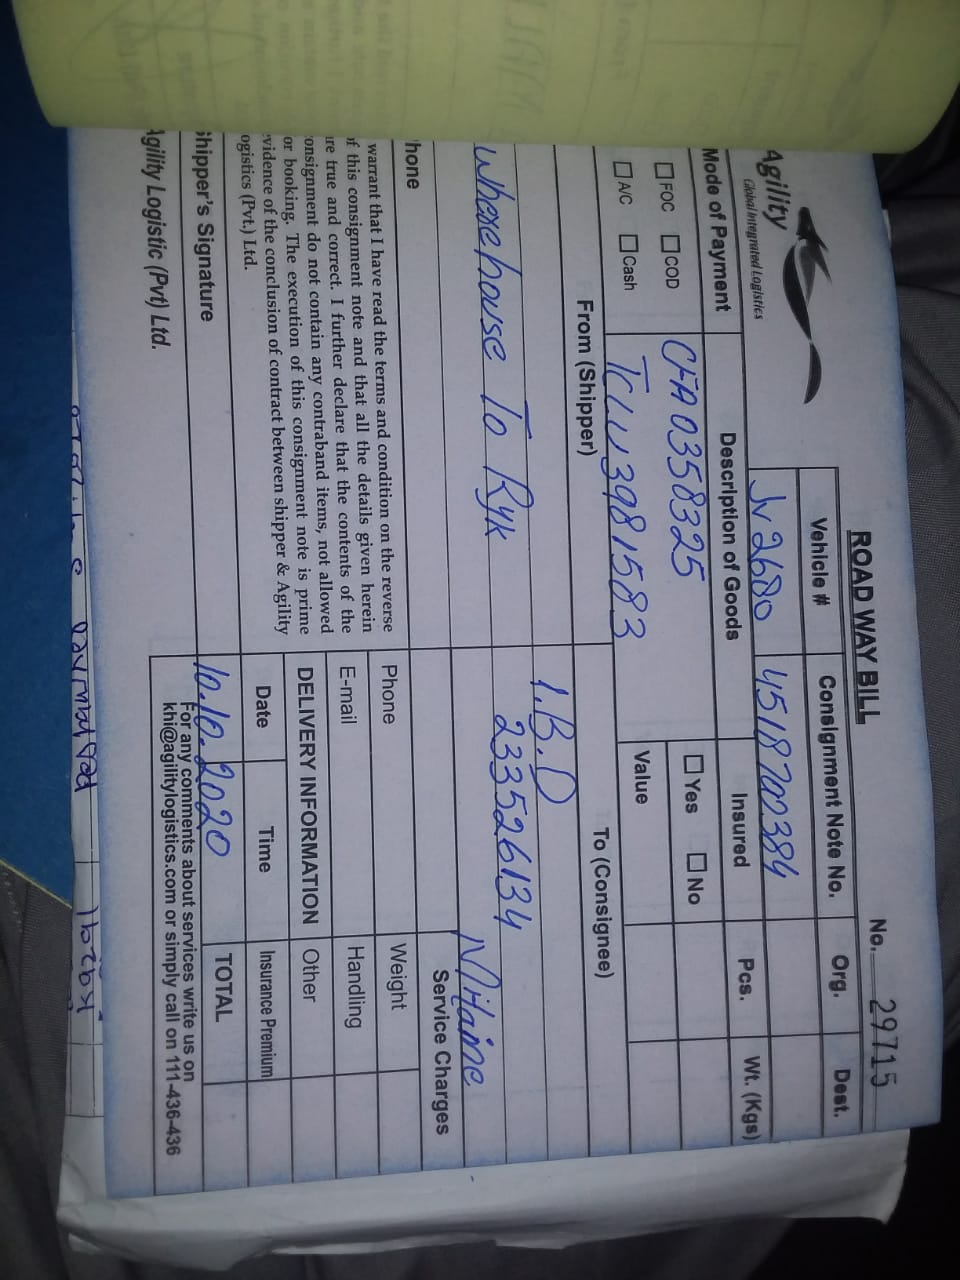 ROAD WAY BILL
No. 29715
Agility
Global Integrated Logistics
Vehicle #
Consignment Note No.
Org.
Dest.
Jv 2680
4518702384
Mode of Payment
Description of Goods
Insured
Pcs.
Wt. (Kgs)
FOC
COD
A/C
Cash
CFA 0358325
TCLU 3981583
Yes
No
Value
From (Shipper)
To (Consignee)
wherehouse To Ryk
I.B.D
233526134
Service Charges
hone
Phone
Weight
E-mail
Handling
warrant that I have read the terms and condition on the reverse
of this consignment note and that all the details given herein
are true and correct. I further declare that the contents of the
consignment do not contain any contraband items, not allowed
or booking. The execution of this consignment note is prime
evidence of the conclusion of contract between shipper & Agility
ogistics (Pvt.) Ltd.
DELIVERY INFORMATION
Other
Date
Time
Insurance Premium
10.10.2020
TOTAL
Shipper's Signature
Agility Logistic (Pvt) Ltd.
For any comments about services write us on
khi@agilitylogistics.com or simply call on 111-436-436